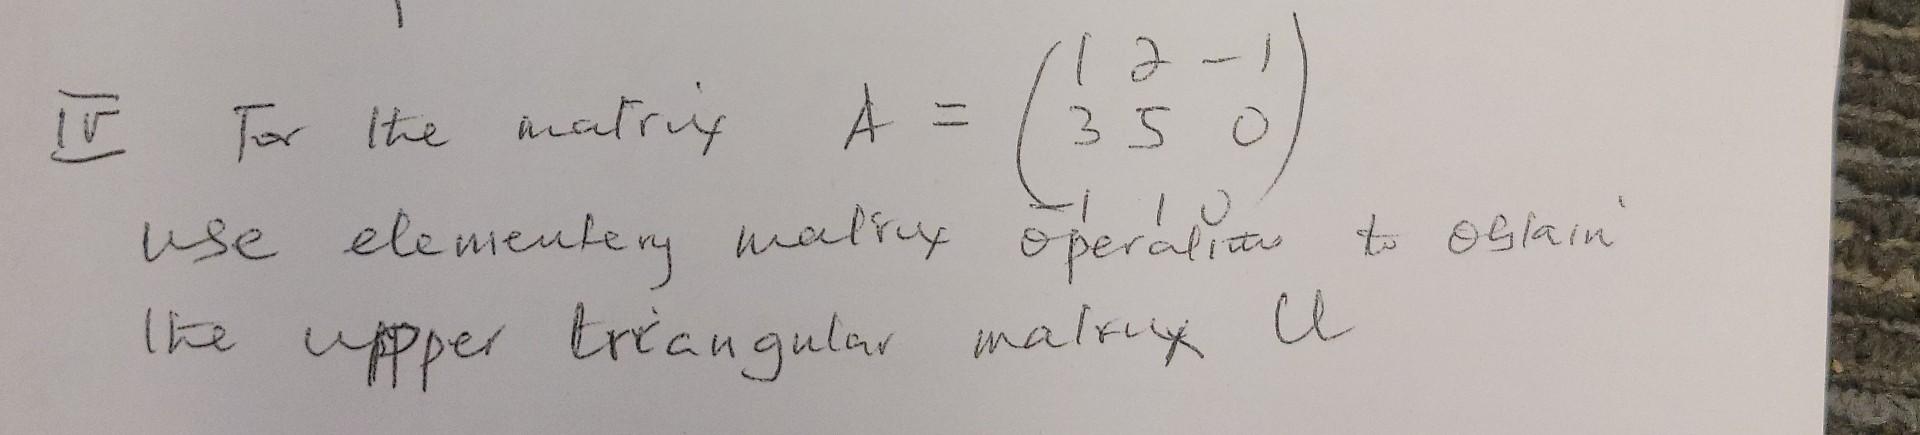 IV For the matrix A = (1 2 -1
3 5 0
-1 1 0)
use elementery matrix operation to obtain
the uppper triangular matrix U